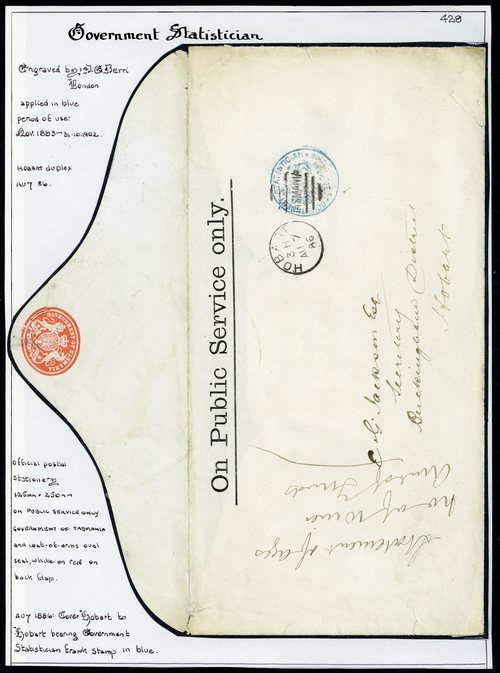 428
Government Statistician
Engraved by: D.G. Berri
London
applied in blue
period of use:
Nov. 1883-31-10.1902.
HOBART duplex
AU 7 86.
official postal
stationery
125mm x 250mm
ON PUBLIC SERVICE ONLY
GOVERNMENT OF TASMANIA
and coat-of-arms oval
seal, white on red on
back flap.
AU 7 1886: Cover Hobart to
Hobart bearing Government
Statistician frank stamp in blue.
GOVERNMENT OF TASMANIA
On Public Service only.
TASMANIA
HOBART
3 H
AU 7
86
G. Jackson Esq
Secretary
Buckingham District
Hobart
Statement of ages
no of Wives
Amt of Funds